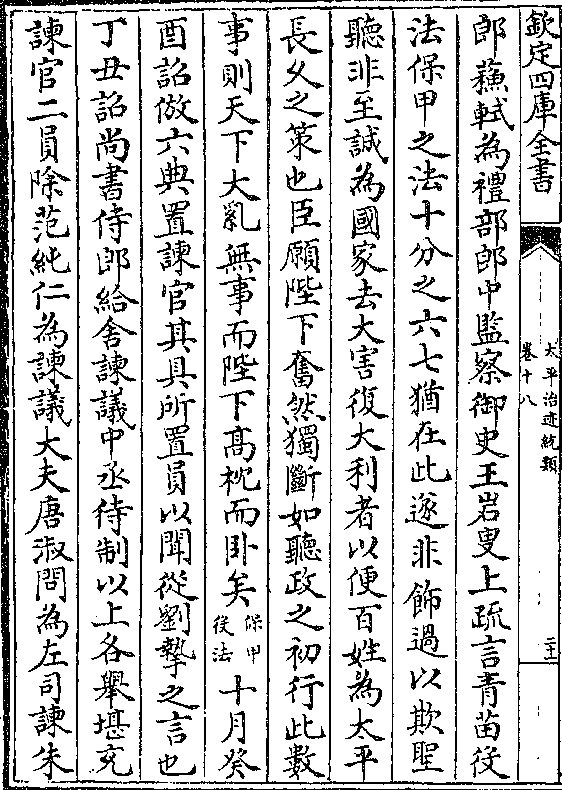 欽定四庫全書
太平治迹統類
卷十八
二十一
郎蘇軾為禮部郎中監察御史王岩叟上疏言青苗役
法保甲之法十分之六七猶在此遂非飾過以欺聖
聽非至誠為國家去大害復大利者以便百姓為太平
長久之策也臣願陛下奮然獨斷如聽政之初行此數
事則天下大亂無事而陛下髙枕而卧矣保甲役法十月癸
酉詔倣六典置諫官其具所置員以聞從劉摯之言也
丁丑詔尚書侍郎給舍諫議中丞待制以上各舉堪充
諫官二員除范純仁為諫議大夫唐淑問為左司諫朱